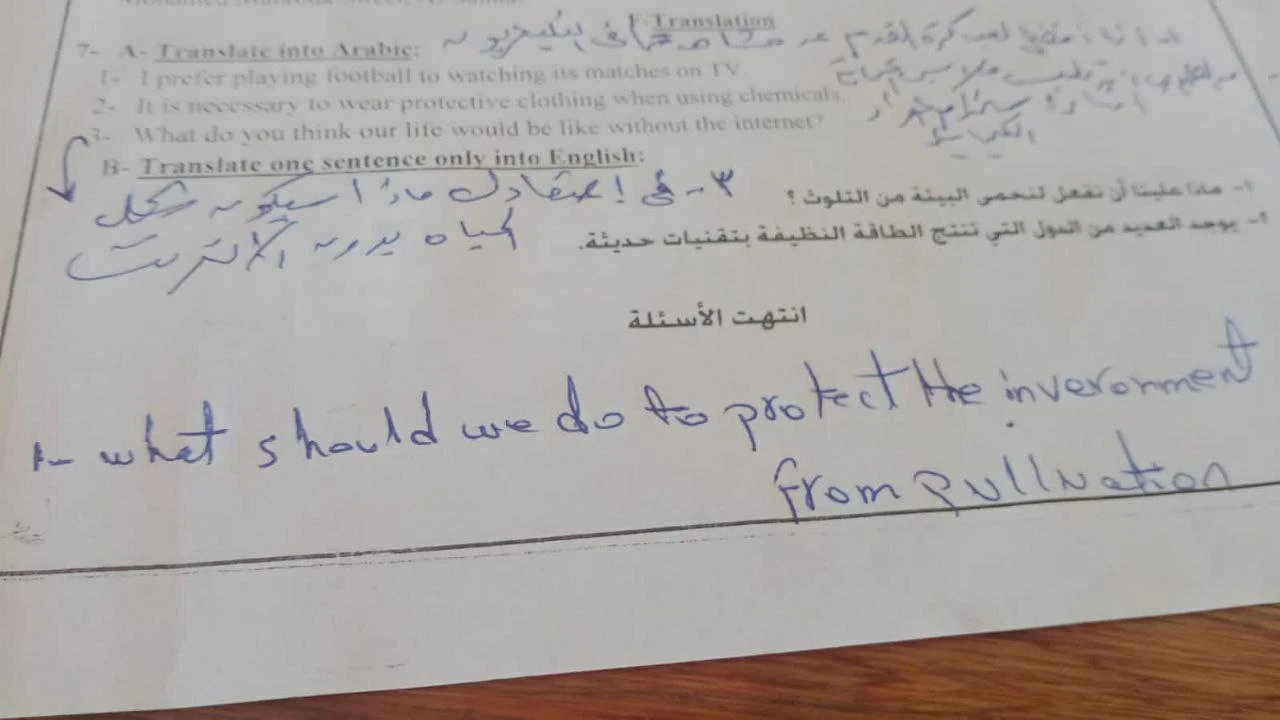 F-Translation
7- A- Translate into Arabic:
1- أنا أفضل لعب كرة القدم عن مشاهدتها في التليفزيون
1- I prefer playing football to watching its matches on TV.
2- It is necessary to wear protective clothing when using chemicals.
3- What do you think our life would be like without the internet?
B- Translate one sentence only into English:
٣- في إعتقادك ماذا سيكون شكل
الحياه بدون الأنترنت
١- ماذا علينا أن نفعل لنحمى البيئة من التلوث ؟
٢- يوجد العديد من الدول التي تنتج الطاقة النظيفة بتقنيات حديثة.
انتهت الأسئلة
1- what should we do to protect the inveronment
from pullnation